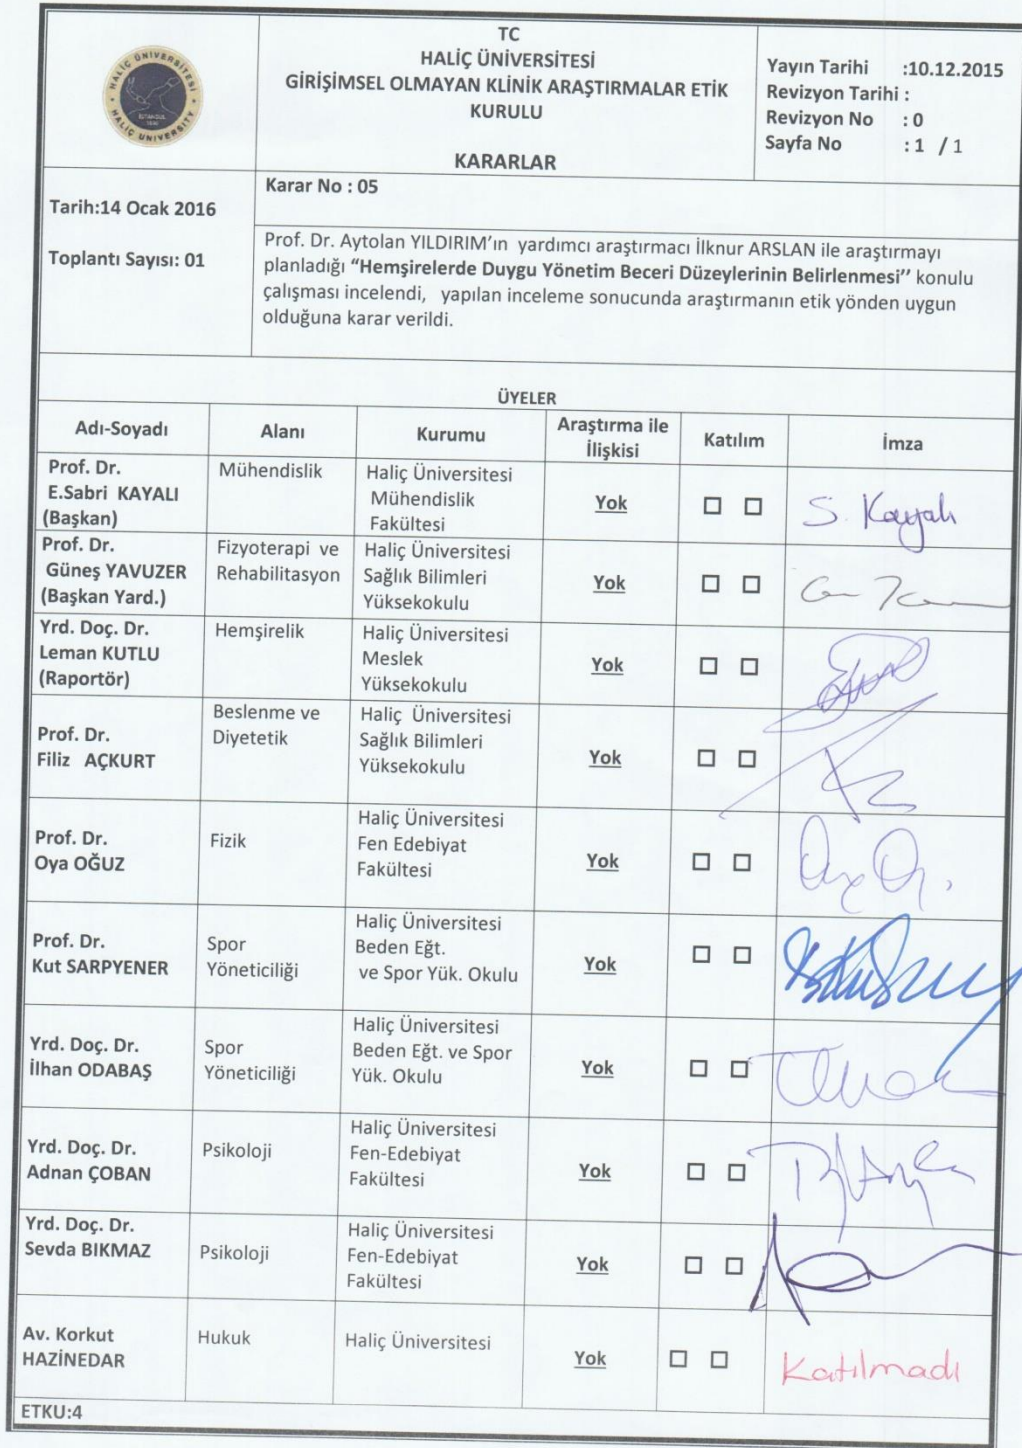 HALİÇ ÜNİVERSİTESİ
İSTANBUL
HALIC UNIVERSITY
TC
HALİÇ ÜNİVERSİTESİ
GİRİŞİMSEL OLMAYAN KLİNİK ARAŞTIRMALAR ETİK
KURULU
KARARLAR
Yayın Tarihi :10.12.2015
Revizyon Tarihi :
Revizyon No : 0
Sayfa No : 1 / 1
Tarih:14 Ocak 2016
Toplantı Sayısı: 01
Karar No : 05
Prof. Dr. Aytolan YILDIRIM’ın yardımcı araştırmacı İlknur ARSLAN ile araştırmayı
planladığı “Hemşirelerde Duygu Yönetim Beceri Düzeylerinin Belirlenmesi’’ konulu
çalışması incelendi, yapılan inceleme sonucunda araştırmanın etik yönden uygun
olduğuna karar verildi.
ÜYELER
Adı-Soyadı
Alanı
Kurumu
Araştırma ile
İlişkisi
Katılım
İmza
Prof. Dr.
E.Sabri KAYALI
(Başkan)
Mühendislik
Haliç Üniversitesi
Mühendislik
Fakültesi
Yok
S. Kayalı
Prof. Dr.
Güneş YAVUZER
(Başkan Yard.)
Fizyoterapi ve
Rehabilitasyon
Haliç Üniversitesi
Sağlık Bilimleri
Yüksekokulu
Yok
Yrd. Doç. Dr.
Leman KUTLU
(Raportör)
Hemşirelik
Haliç Üniversitesi
Meslek
Yüksekokulu
Yok
Prof. Dr.
Filiz AÇKURT
Beslenme ve
Diyetetik
Haliç Üniversitesi
Sağlık Bilimleri
Yüksekokulu
Yok
Prof. Dr.
Oya OĞUZ
Fizik
Haliç Üniversitesi
Fen Edebiyat
Fakültesi
Yok
Prof. Dr.
Kut SARPYENER
Spor
Yöneticiliği
Haliç Üniversitesi
Beden Eğt.
ve Spor Yük. Okulu
Yok
Yrd. Doç. Dr.
İlhan ODABAŞ
Spor
Yöneticiliği
Haliç Üniversitesi
Beden Eğt. ve Spor
Yük. Okulu
Yok
Yrd. Doç. Dr.
Adnan ÇOBAN
Psikoloji
Haliç Üniversitesi
Fen-Edebiyat
Fakültesi
Yok
Yrd. Doç. Dr.
Sevda BIKMAZ
Psikoloji
Haliç Üniversitesi
Fen-Edebiyat
Fakültesi
Yok
Av. Korkut
HAZİNEDAR
Hukuk
Haliç Üniversitesi
Yok
Katılmadı
ETKU:4